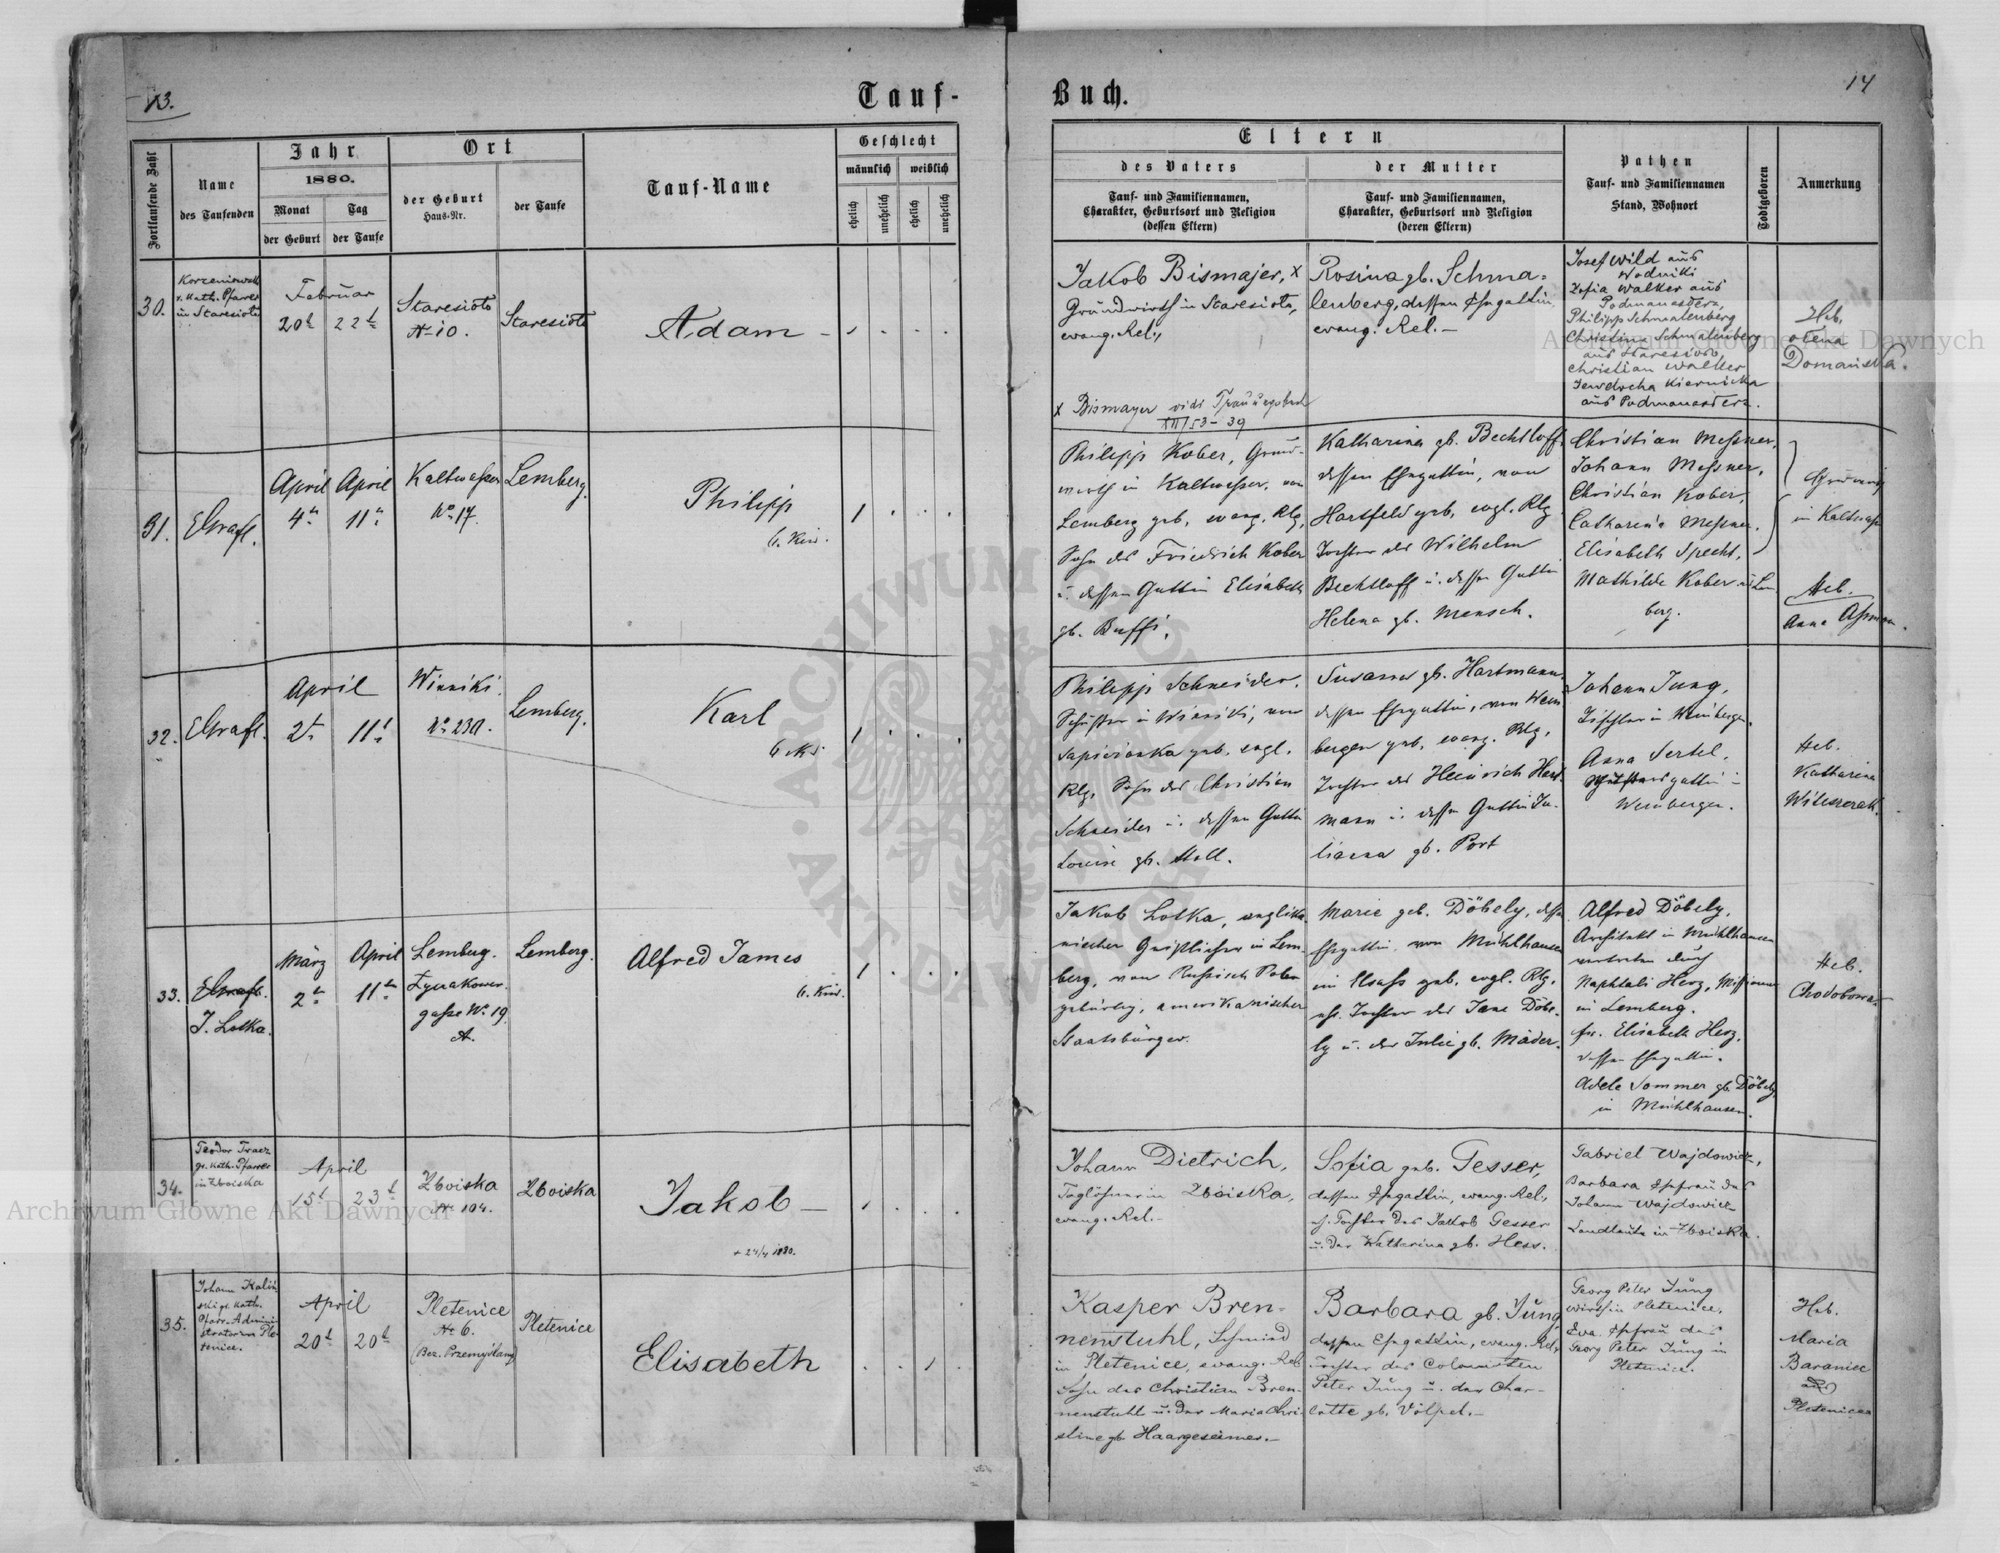 13.
Tauf-
Fortlaufende Zahl
Name
des Taufenden
Jahr
1880.
Monat
Tag
der Geburt
der Taufe
Ort
der Geburt
Haus-Nr.
der Taufe
Tauf-Name
Geschlecht
männlich
weiblich
ehelich
unehelich
ehelich
unehelich
30.
r. Kath. Pfarrer
in Staresioło
Februar
20t
22t
Staresioło
No 10.
Staresioło
Adam
31.
EGraf.
April
April
4
11
Kaltwasser
No 17.
Lemberg.
Philipp
32.
EGraf.
April
2
11
Winniki.
No 230.
Lemberg.
Karl
33.
J. Lotka.
März
April
2
11
Lemberg.
gasse No 19
A.
Lemberg.
Alfred James
34.
gr. Kath. Pfarrer
in Zboiska
April
15t
23t
Zboiska
No 104.
Zboiska
Jakob
+ 24/4 1880.
35.
Johann Kaliń
ski gr. kath.
Pfarr-Admini
strator in Ple
tenice.
April
20t
20t
Pletenice
No 6.
(Bez. Przemyślany)
Pletenice
Elisabeth
14
Buch.
Eltern
des Vaters
Tauf- und Familiennamen,
Charakter, Geburtsort und Religion
(dessen Eltern)
der Mutter
Tauf- und Familiennamen,
Charakter, Geburtsort und Religion
(deren Eltern)
Pathen
Tauf- und Familiennamen
Stand, Wohnort
Todtgeboren
Anmerkung
Jakob Bismajer, x
Grundwirth in Staresioło,
evang. Rel.,
x Bismayer vidi Trauungsbuch
III/53-39
Rosina gb. Schma-
lenberg, dessen Ehegattin
evang. Rel.
Josef Wild aus
Wodniki
Zofia Walker aus
Podmanasterz,
Philipp Schmalenberg
Christina Schmalenberg
aus Staresioło
Christian Walker
Jewdocha Kiernicka
aus Podmanasterz.
Heb.
Domańska.
Philipp Kober, Grund-
wirth in Kaltwasser, von
Lemberg geb. evang. Rlg,
Sohn des Friedrich Kober
u. dessen Gattin Elisabeth
gb. Buffi.
Katharina gb. Bechtloff
dessen Ehegattin, von
Hartfeld geb. evgl. Rlg
Tochter des Wilhelm
Bechtloff u. dessen Gattin
Helena gb. Mensch.
Christian Messner.
Johann Messner,
Christian Kober,
Catharina Messner.
Elisabeth Specht,
Mathilde Kober aus Lem
berg.
in Kaltwasser
Heb.
Anna
Philipp Schneider.
Schuster in Winniki, von
Sapieżanka geb. evgl.
Rlg, Sohn des Christian
Schneider u. dessen Gattin
Louise gb. Stoll.
Susanna gb. Hartmann
dessen Ehegattin, von Wein
bergen geb. evang. Rlg,
Tochter des Heinrich Hart
mann u. dessen Gattin Ju-
lianna gb. Port
Johann Jung,
Tischler in Weinbergen.
Anna Sertel.
Weinbergen.
Heb.
Katharina
Jakob Lotka, anglika
nischer Geistlicher in Lem
berg, von Russisch Polen
gebürtig, amerikanischer
Staatsbürger.
Marie geb. Döbely, dessen
Ehegattin, von Mühlhausen
im Elsass geb. evgl. Rlg,
eh. Tochter des Jane Döbe-
ly u. der Julie gb. Mäder.
Alfred Döbely,
Architekt in Mühlhausen
vertreten durch
Naphtali Herz, Missionär
in Lemberg.
fr. Elisabeth Herz,
dessen Ehegattin.
Adele Sommer gb. Döbely
in Mühlhausen.
Heb.
Johann Dietrich,
Taglöhner in Zboiska,
evang. Rel.
Sofia geb. Gesser,
dessen Ehegattin, evang. Rel.,
eh. Tochter des Jakob Gesser
u. der Katharina gb. Hess.
Gabriel Wajdowicz,
Barbara Ehefrau des
Johann Wajdowicz
Landleute in Zboiska.
Kasper Bren-
nenstuhl, Schmied
in Pletenice, evang. Rel.
Sohn des Christian Bren-
nenstuhl u. der Maria Chri-
stine gb. Haargeseimer.
Barbara gb. Jung
dessen Ehegattin, evang. Rel.,
Tochter des Colonisten
Peter Jung u. der Char-
lotte gb. Völpel.
Georg Peter Jung
Wirth in Pletenice.
Eva Ehefrau des
Georg Peter Jung in
Pletenice.
Heb.
Maria
Baraniec
aus
Pletenice
Archiwum Główne Akt Dawnych
Archiwum Główne Akt Dawnych